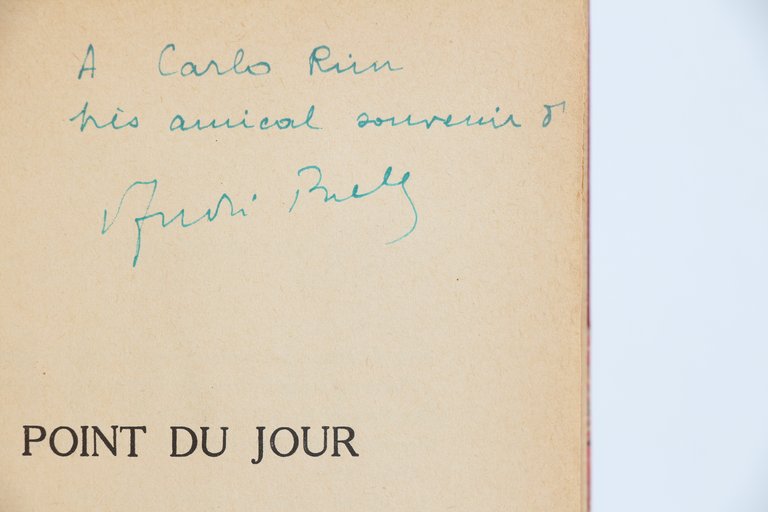 A Carlo Rim
très amical souvenir d'
André
POINT DU JOUR